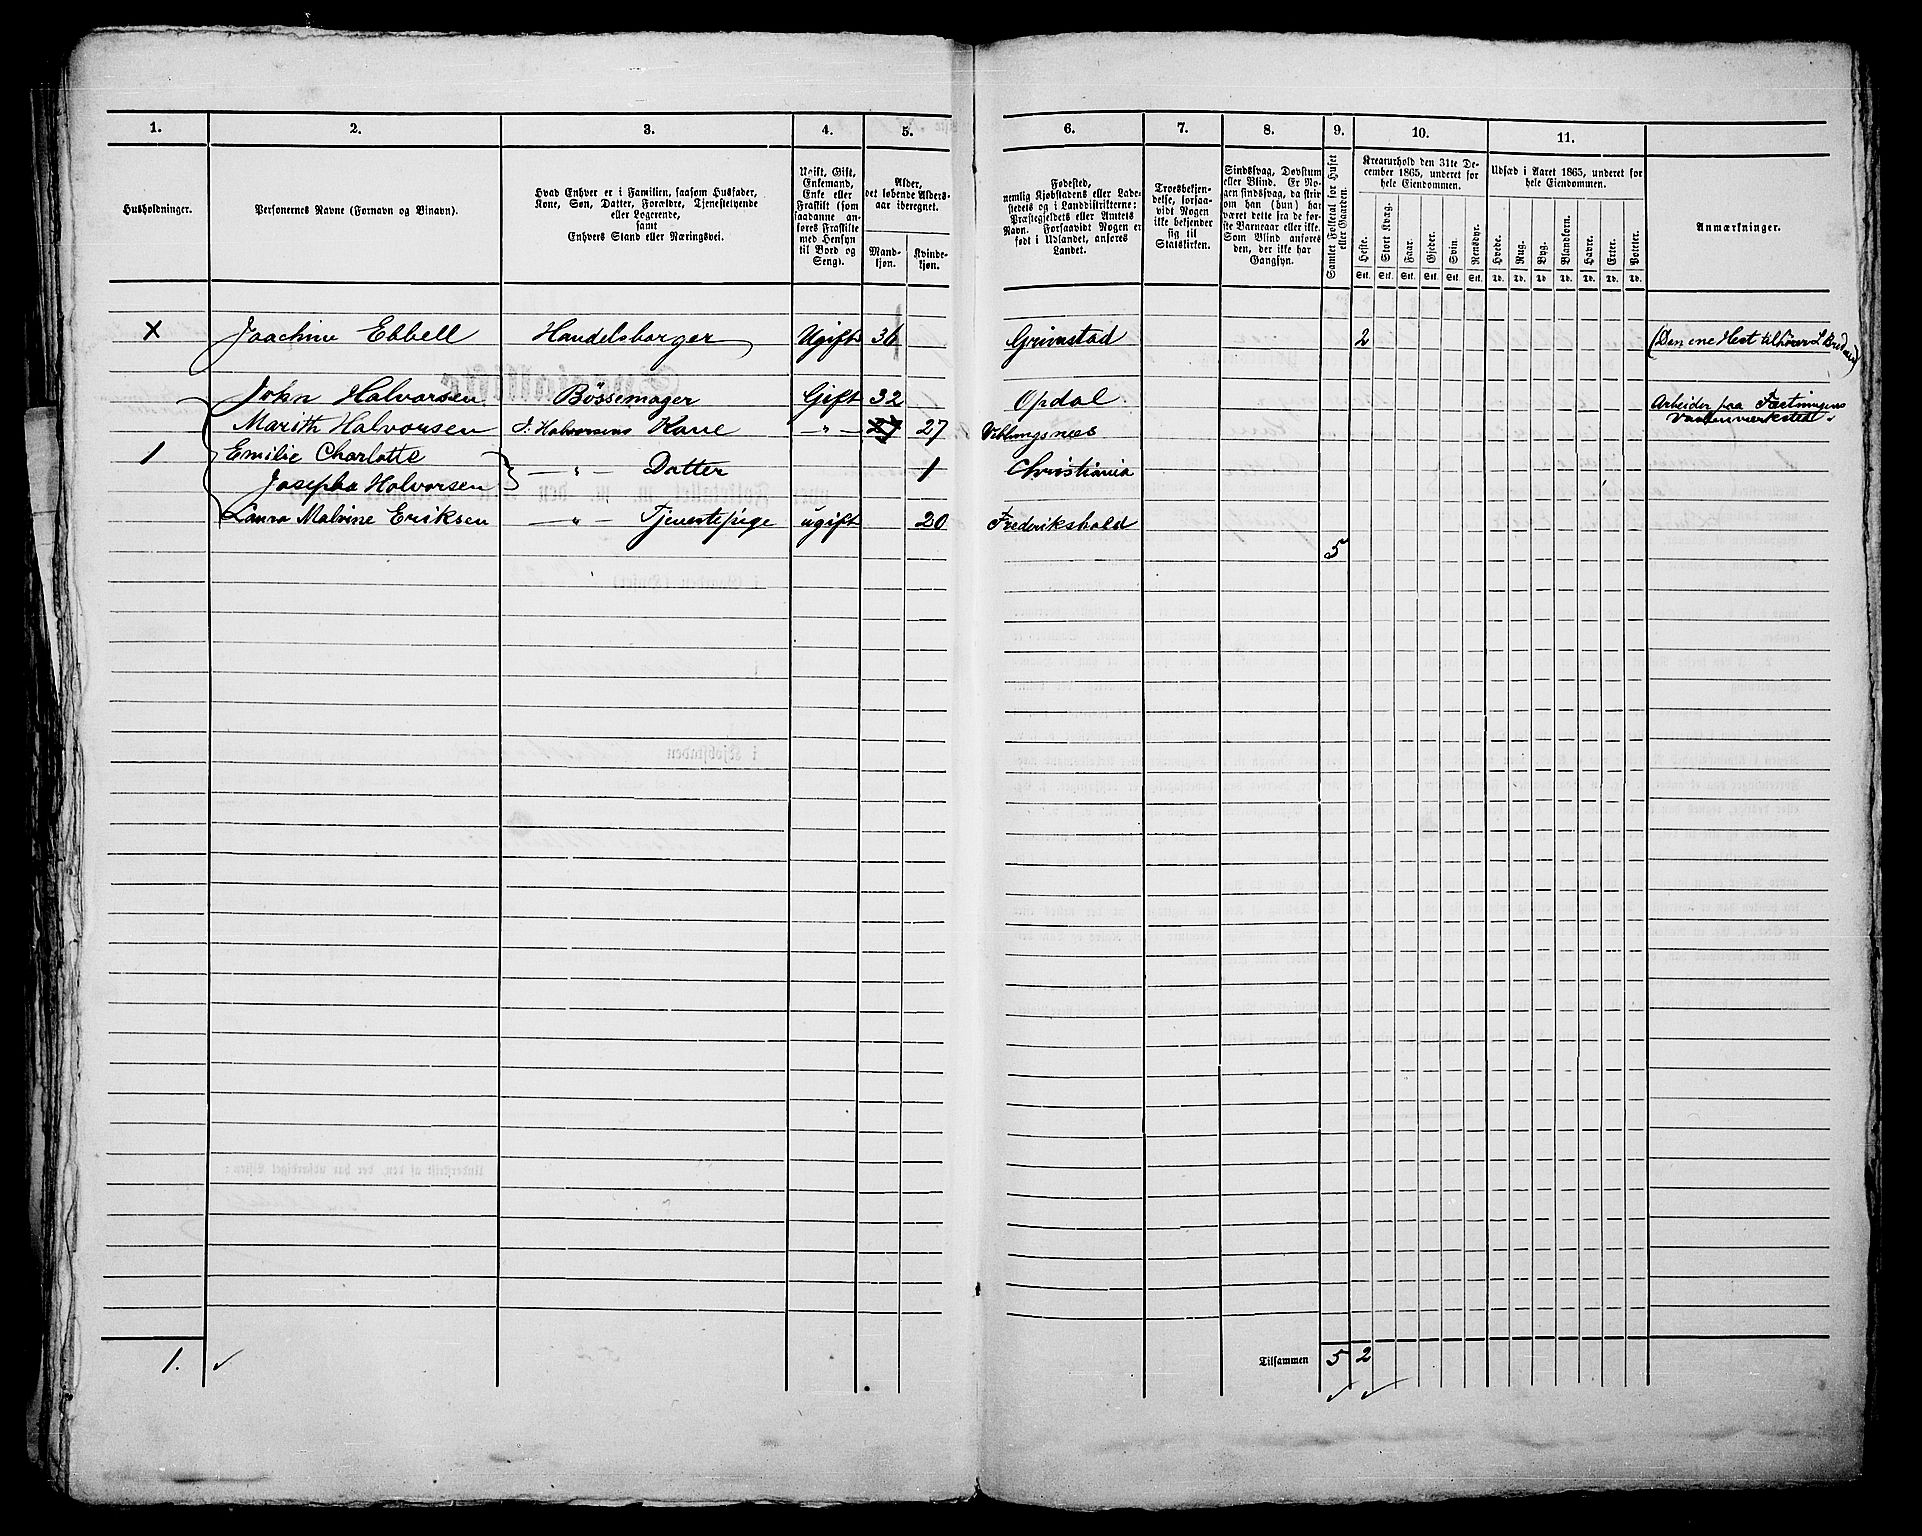 1. 2. 3. 4. 5. 6. 7. 8. 9. 10. 11.
Husholdninger.
Personernes Navne (Fornavn og Binavn).
Hvad Enhver er i Familien, saasom Husfader,
Kone, Søn, Datter, Forældre, Tjenestetyende
eller Logerende,
samt
Enhvers Stand eller Næringsvei.
Ugift, Gift,
Enkemand,
Enke eller
Fraskilt (som
saadanne an-
føres Fraskilte
med Hensyn
til Bord og
Seng).
Alder,
det løbende Alders-
aar iberegnet.
Mand-
kjøn.
Kvinde-
kjøn.
Fødested,
nemlig Kjøbstadens eller Lade-
stedets og i Landdistrikterne:
Præstegjeldets eller Amtets
Navn. Forsaavidt Nogen er
født i Udlandet, anføres
Landet.
Troesbekjen-
delse, forsaa-
vidt Nogen
ikke bekjender
sig til
Statskirken.
Sindssvag, Døvstum
eller Blind. Er No-
gen sindssvag, da skri-
ves om han (hun) har
været dette fra de før-
ste Barneaar eller ikke.
Som Blind anføres
den, der ikke har
Gangsyn.
Samlet Folketal for Huset
eller Gaarden.
Kreaturhold den 31te De-
cember 1865, underet for
hele Eiendommen.
Heste. Stort Kvæg. Faar. Gjeder. Svin. Rensdyr.
Stk. Stk. Stk. Stk. Stk. Stk.
Udsæd i Aaret 1865, underet for
hele Eiendommen.
Hvede. Rug. Byg. Blandkorn. Havre. Erter. Poteter.
Td. Td. Td. Td. Td. Td. Td.
Anmærkninger.
X Joachim Ebbell Handelsborger Ugift 36 Grimstad 2 (Den ene Hest tilhører
John Halvorsen Bössemager Gift 32 Opdal Arbeider paa Fæstningens
Marith Halvorsen J. Halvorsens Kone — " — 27 27 Veblungsnes Vaabenværksted
1 Emilie Charlotte
Josepha Halvorsen — " — Datter 1 Christiania
Laura Malvine Eriksen — " — Tjenestepige ugift 20 Frederikshald
5
1. ✓ Tilsammen 5 2
✓ ✓